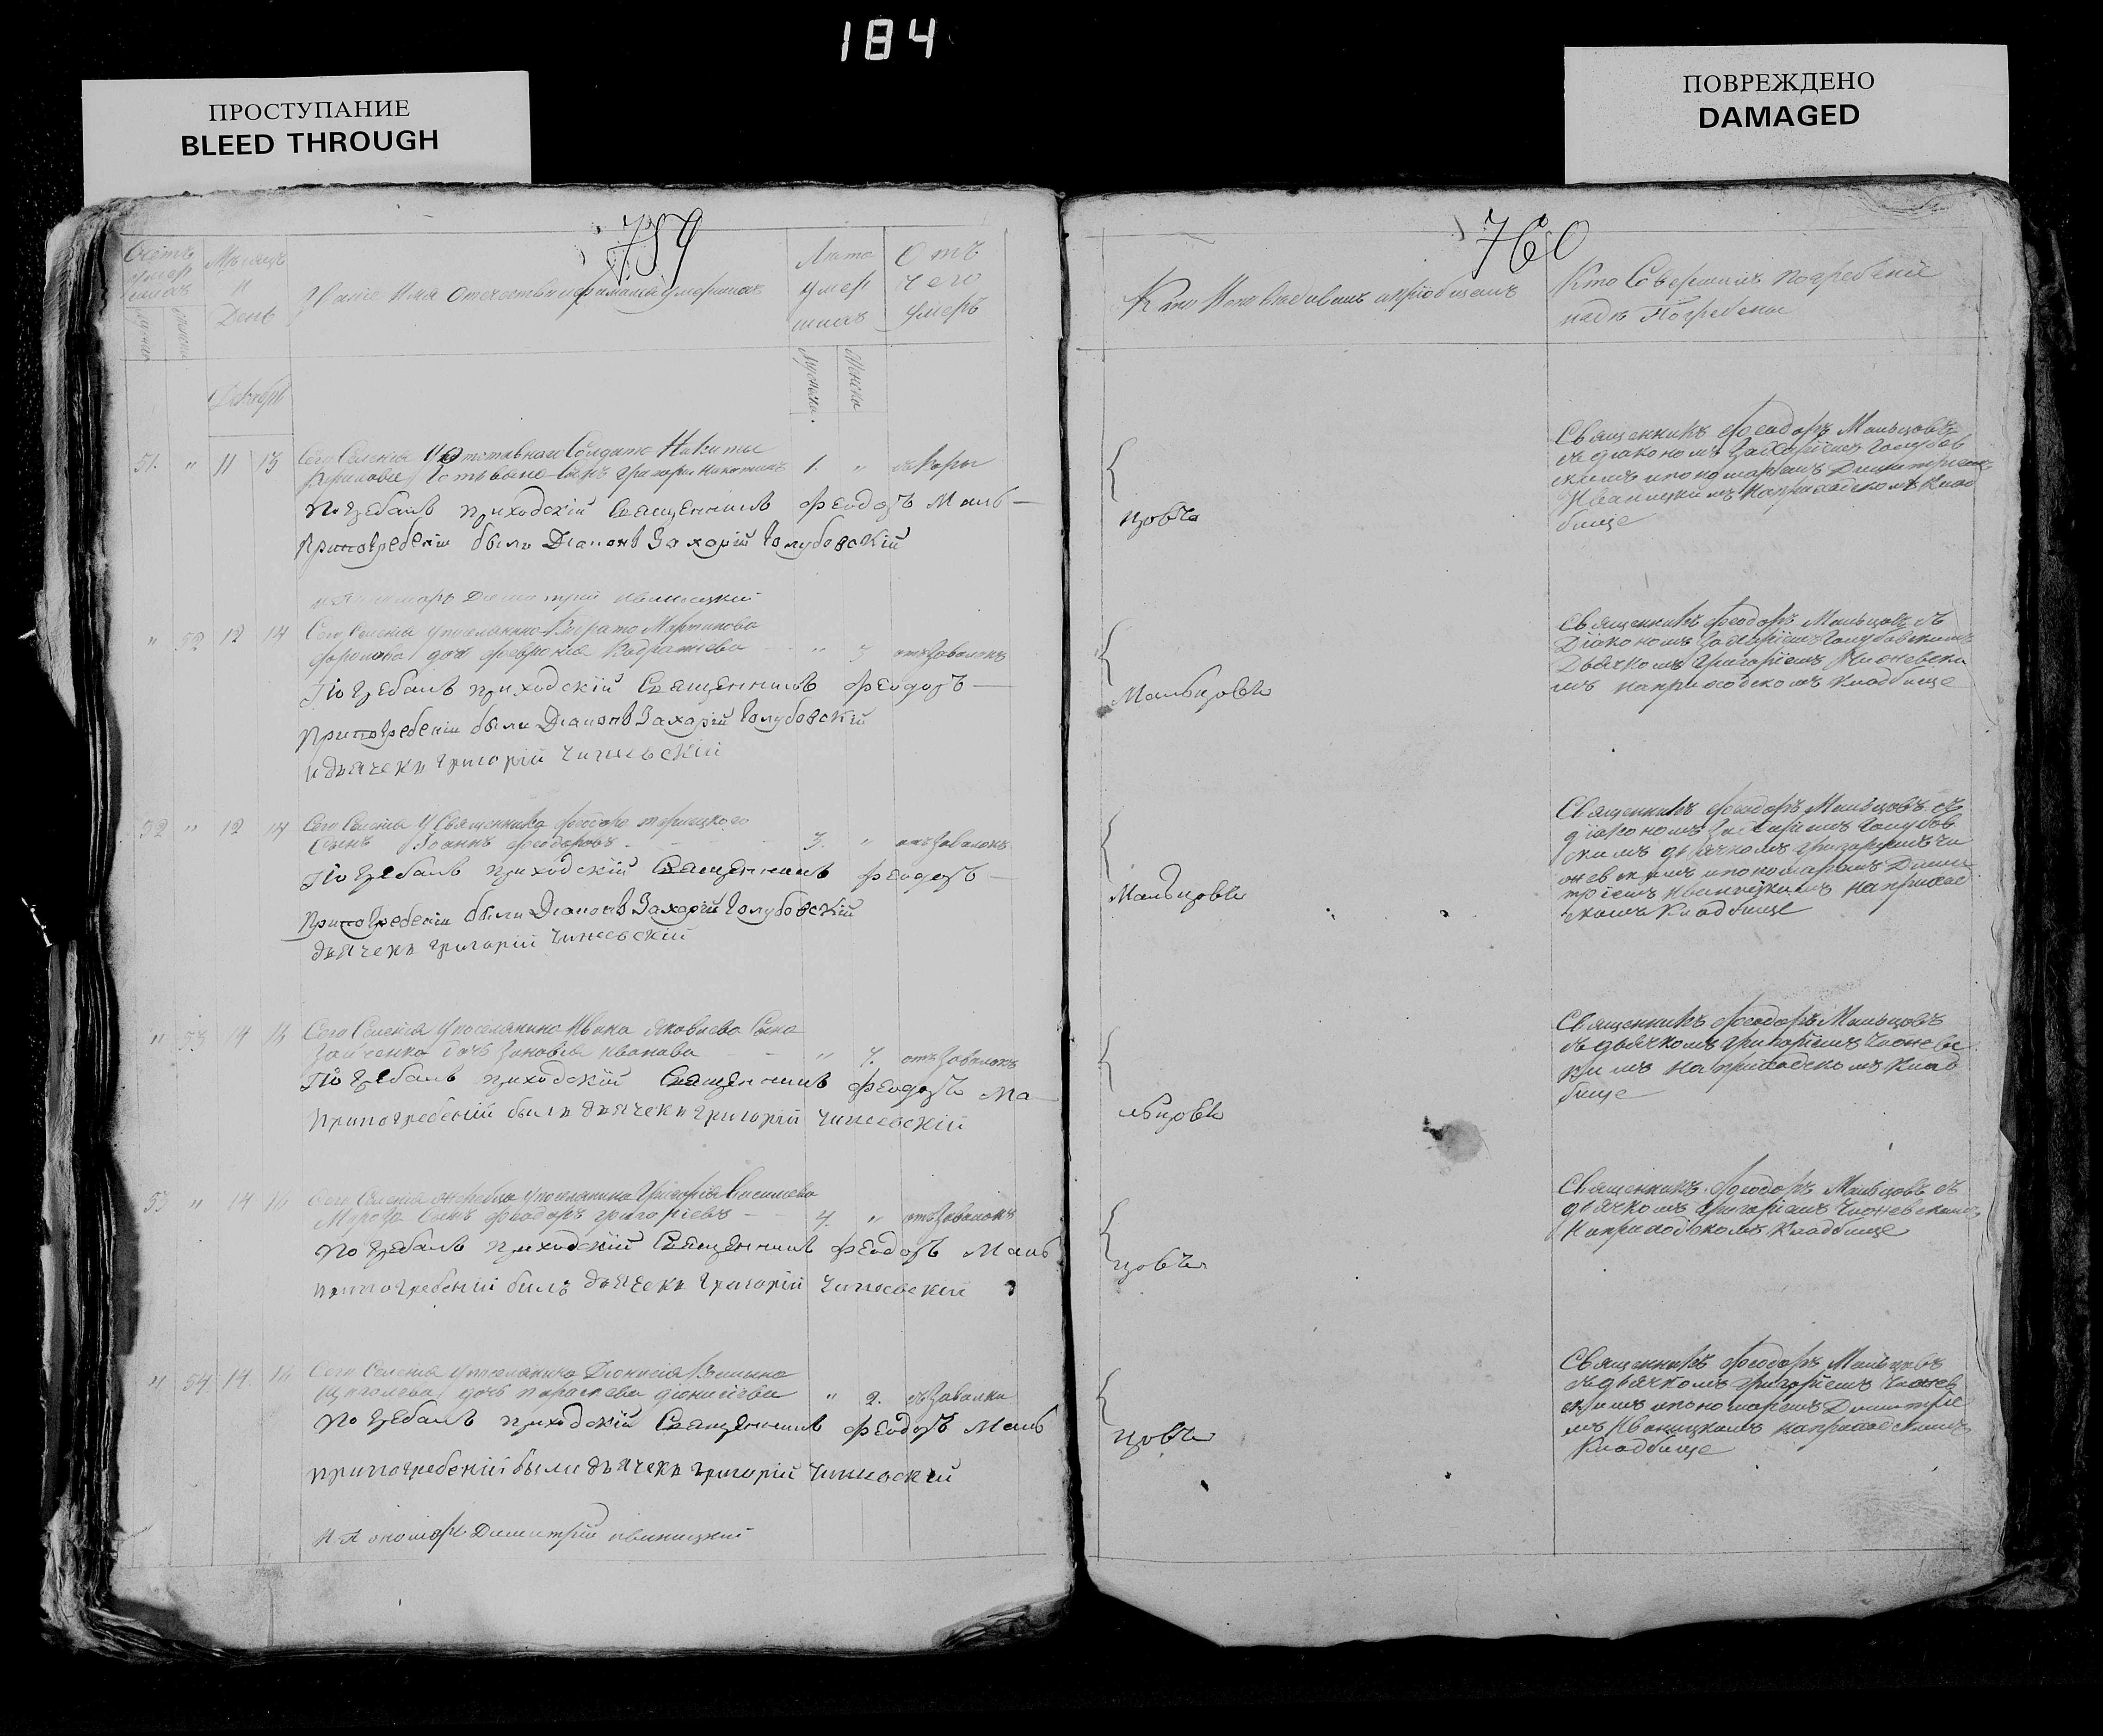 184
ПРОСТУПАНИЕ
BLEED THROUGH
ПОВРЕЖДЕНО
DAMAGED
759
Счетъ умершихъ
Мѣсяцъ и День
Званіе Имя Отечество и фамилія умершихъ
Лѣта умершихъ
Отъ чего умеръ
Мужска
Женска
Декабрь
51. " 11 13 Сего Селенія У отставного Солдата Никиты
сынъ Григорій 1. " съ Кори
Погребалъ приходскій Священникъ Феодоръ Маль-
При погребеніи были Діаконъ Захарій Голубовскій
и Пономарь Димитрій Иваницкий
" 52 12 14 Сего Селенія у поселянина Мартинова
дочь Феврония " 3 отъ Завалокъ
Погребалъ приходскій Священникъ Феодоръ
При погребеніи были Діаконъ Захарій Голубовскій
и дьячекъ Григорій Чижевскій
52 " 12 14 Сего Селенія У Священника Феодора
Сынъ Іоаннъ Феодоровъ 3. " отъ Завалокъ
Погребалъ приходскій Священникъ Феодоръ
При погребеніи были Діаконъ Захарій Голубовскій
дьячекъ Григорій Чижевскій
" 53 14 16 Сего Селенія у поселянина Ивана Яковлева Сына
Зайченка дочь Зиновія Иванова " 7. отъ Завалокъ
Погребалъ приходскій Священникъ Феодоръ Ма
При погребеніи былъ дьячекъ Григорій Чижевскій
53 " 14 16 Сего Селенія у поселянина Григорія Василева
Мороза Сынъ Феодоръ Григоріевъ 4. " отъ Завалокъ
Погребалъ приходскій Священникъ Феодоръ Маль
при погребеніи былъ дьячекъ Григорій Чижевскій
" 54 14 16 Сего Селенія у поселянина Діонисія
дочь Параскева Діонисіева " 2. съ Завалки
Погребалъ приходскій Священникъ Феодоръ Маль
при погребеніи были дьячекъ Григорій Чижевскій
и Пономарь Димитрій Иваницкий
760
Кто Исповѣдывалъ и пріобщалъ
Кто Совершилъ погребеніе
и гдѣ Погребены
цовъ
Мальцовъ
Мальцовъ
льцовъ
цовъ
цовъ
Священникъ Феодоръ Мальцовъ
съ діакономъ Захаріемъ Голубов
скимъ и пономаремъ Димитріемъ
Иваницкимъ на приходскомъ Клад
бище
Священникъ Феодоръ Мальцовъ съ
Діакономъ Захаріемъ Голубовскимъ
Дьячкомъ Григоріемъ Чижевски
мъ на приходскомъ Кладбище
Священникъ Феодоръ Мальцовъ съ
діакономъ Захаріемъ Голубов
скимъ дьячкомъ Григоріемъ Чи
жевскимъ и пономаремъ Дими
тріемъ Иваницкимъ на приход
скомъ Кладбище
Священникъ Феодоръ Мальцовъ
съ дьячкомъ Григоріемъ Чижевс
кимъ на приходскомъ Клад
бище
Священникъ Феодоръ Мальцовъ съ
дьячкомъ Григоріемъ Чижевскимъ
На приходскомъ Кладбище
Священникъ Феодоръ Мальцовъ
съ дьячкомъ Григоріемъ Чижев
скимъ и пономаремъ Димитріе
мъ Иваницкимъ на приходскомъ
Кладбище